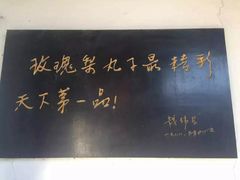 玫瑰梨丸子最精彩
天下第一品！